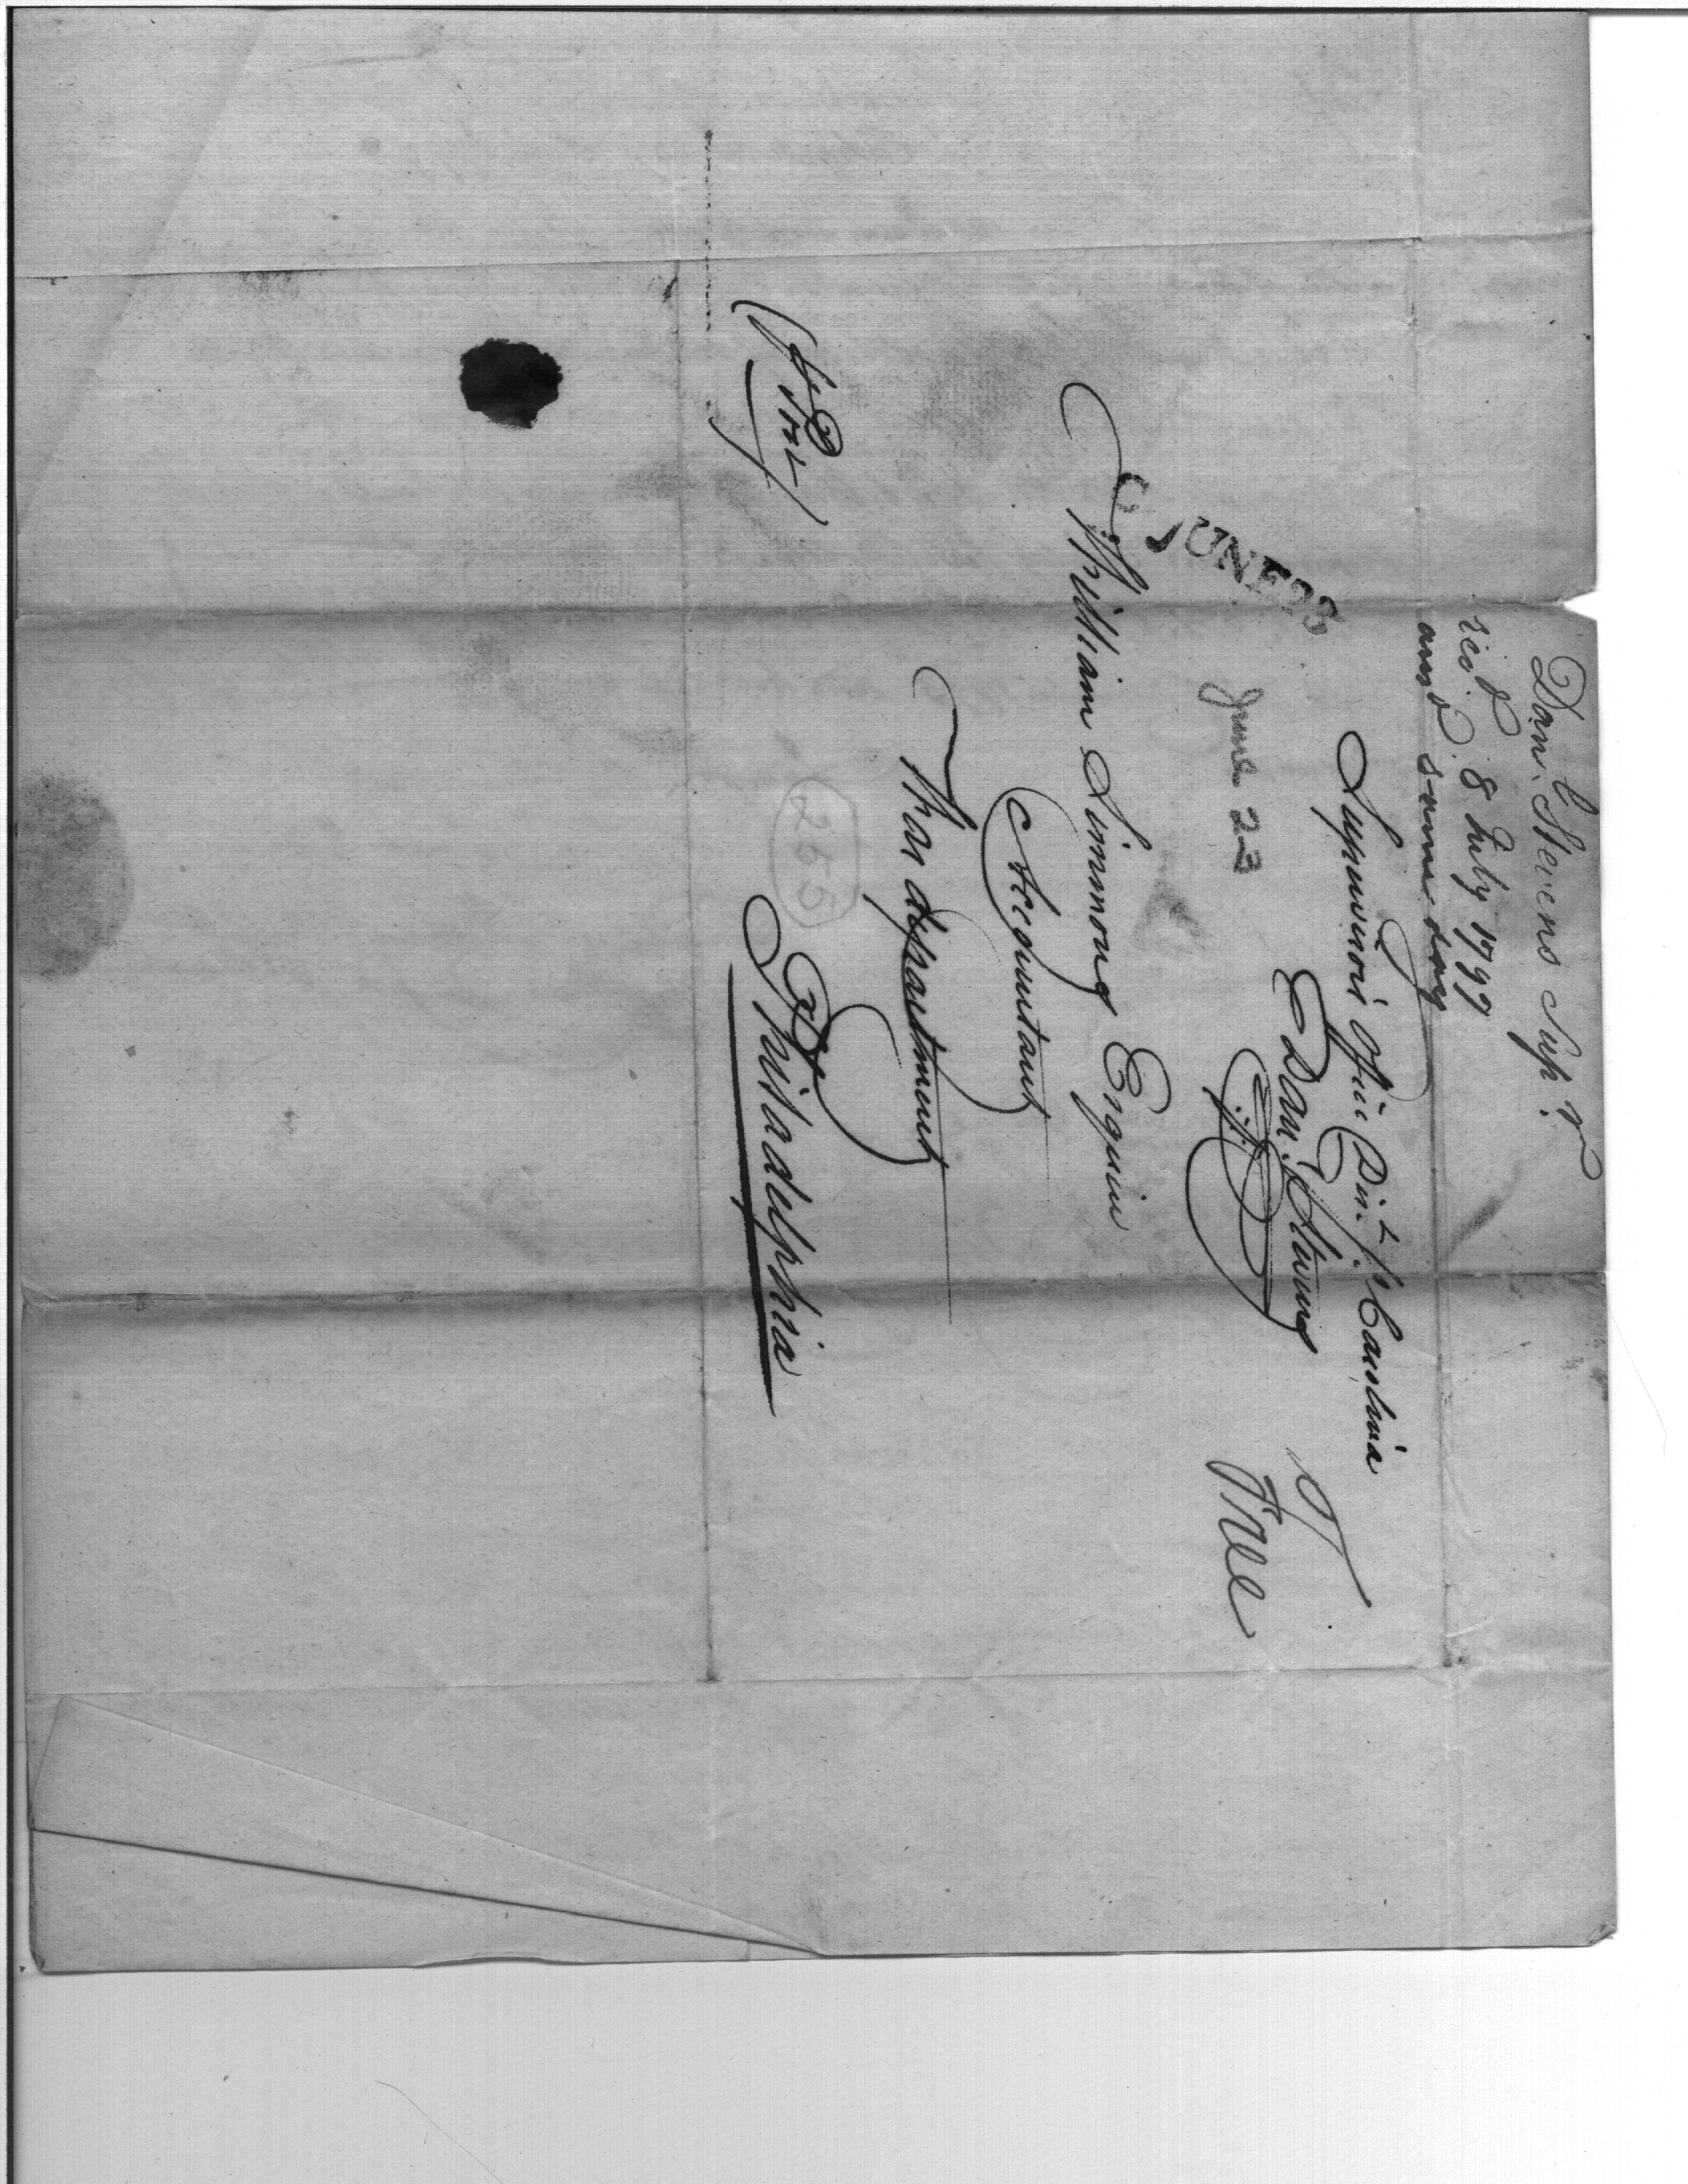 Dan.l Stevens Sup.r
rec.d 8 July 1799
ans.d same day
Supervisors Office Dist. S.o Carolina
Dan.l Stevens
Free
C JUNE 23
June 23
William Simmons Esquire
Accountant
War department
Philadelphia
265